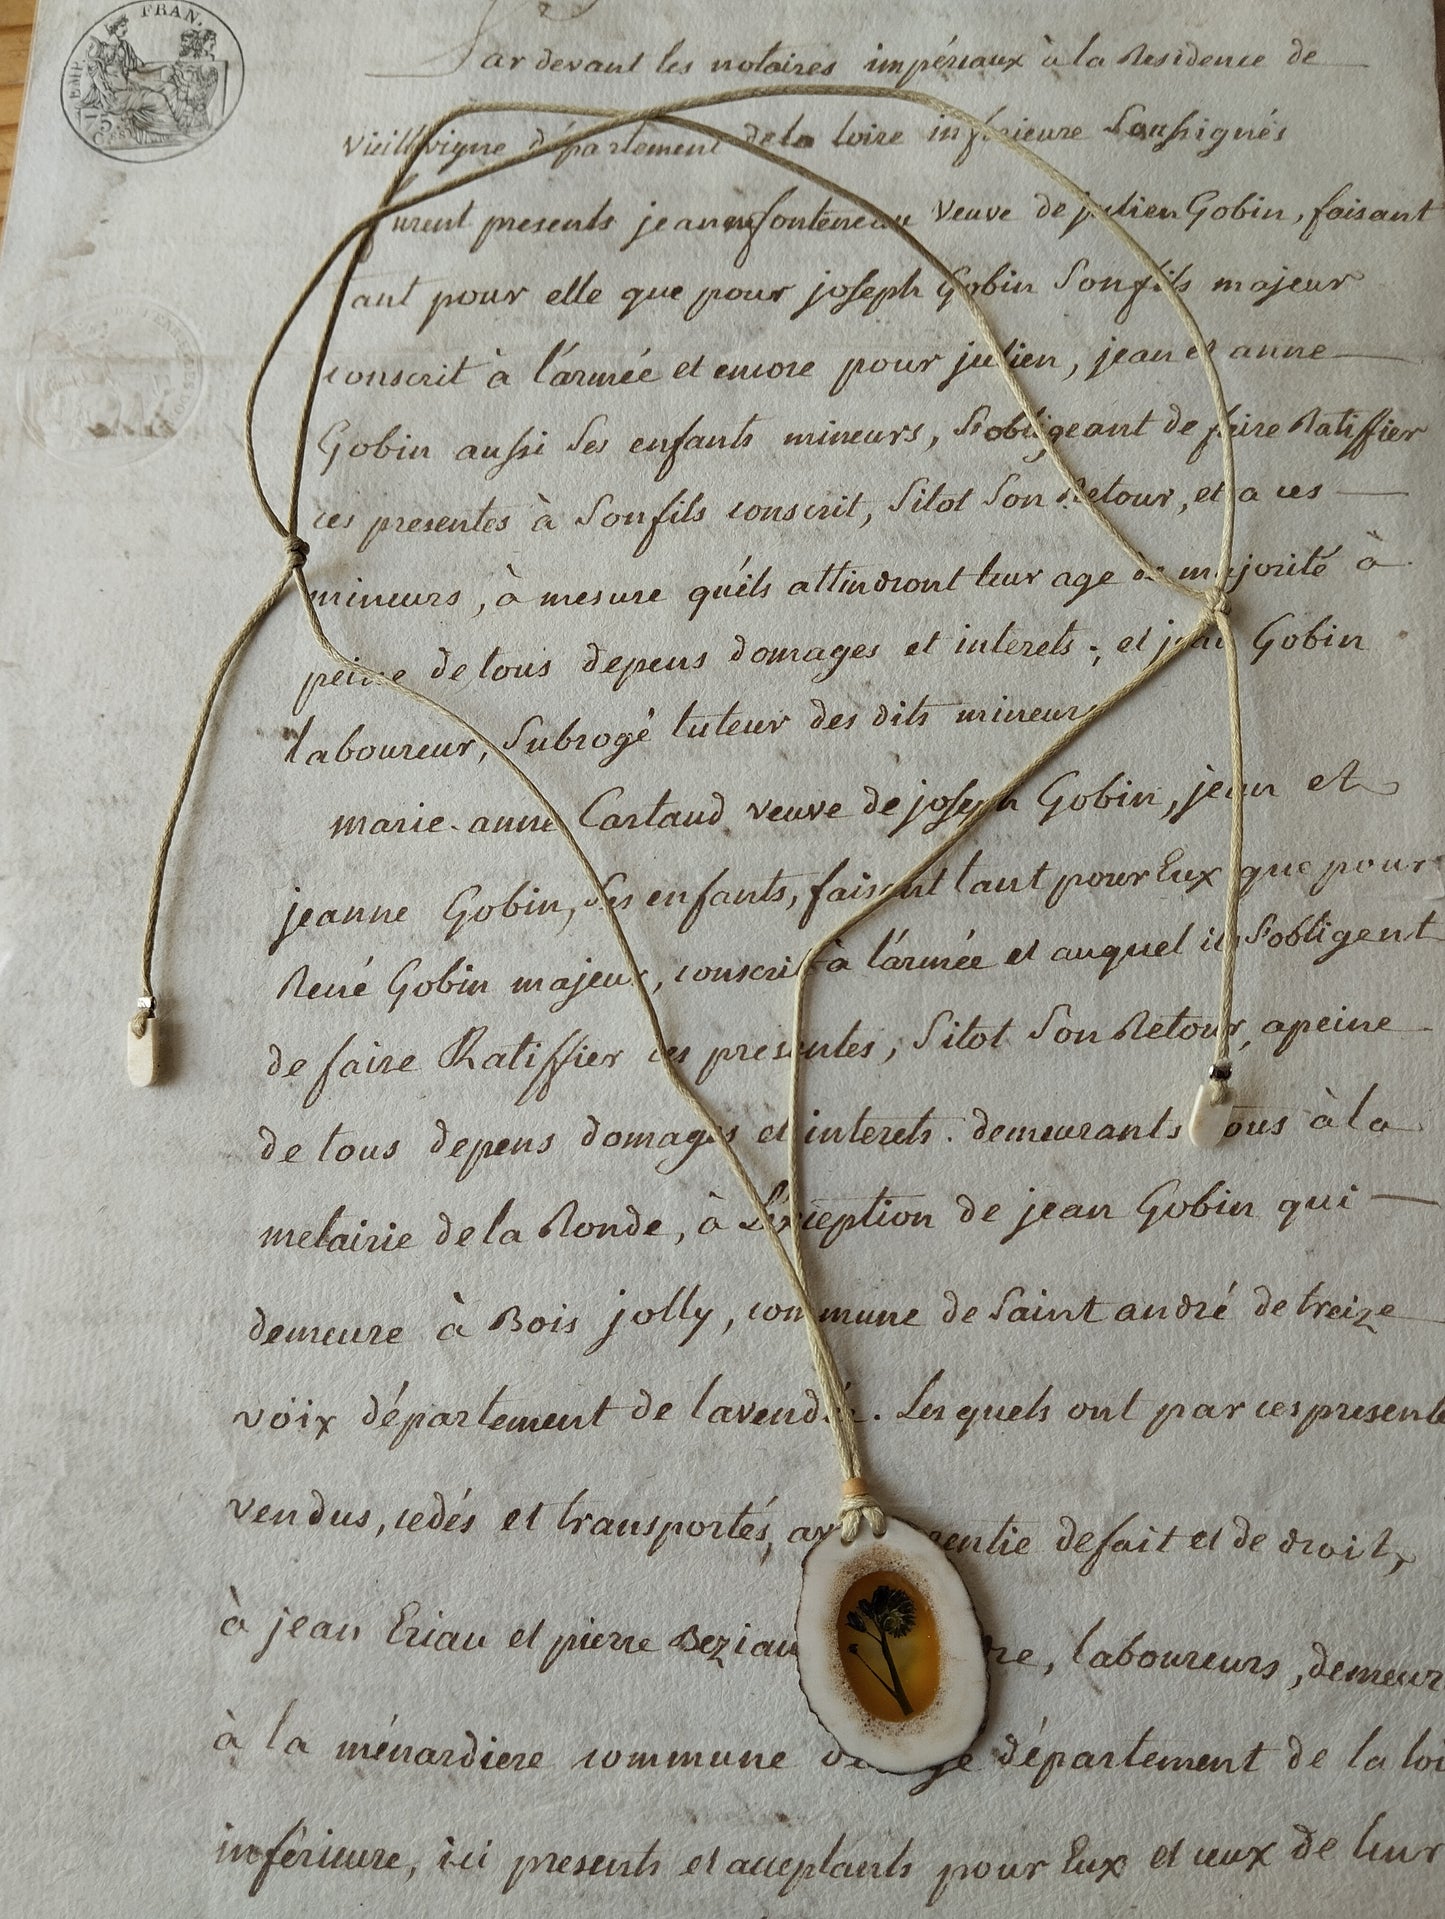 EMP. FRAN.
Par devant les notaires impériaux à la Residence de
vieillevigne département de la loire inférieure Soussignés
furent presents jeanne fonteneau veuve de julien Gobin, faisant
tant pour elle que pour joseph Gobin Son fils majeur
conscrit à l'armée et encore pour julien, jean et anne
Gobin aussi Ses enfants mineurs, S'obligeant de faire Ratiffier
ces presentes à Son fils conscrit, Sitot Son Retour, et a ces
mineurs, à mesure qu'ils attindront leur age de majorité à
peine de tous depens domages et interets; et jean Gobin
laboureur, Subrogé tuteur des dits mineurs
marie-anne Cartaud veuve de joseph Gobin, jean et
jeanne Gobin, Ses enfants, faisant tant pour Eux que pour
René Gobin majeur, conscrit à l'armée et auquel ils S'obligent
de faire Ratiffier ces presentes, Sitot Son Retour, a peine
de tous depens domages et interets. demeurants tous à la
metairie de la Ronde, à L'exception de jean Gobin qui
demeure à Bois jolly, commune de Saint andré de treize
voix département de la vendée. Les quels ont par ces presente
vendus, cedés et transportés, de fait et de droit,
à jean Eriau et pierre Beziau laboureurs, demeur
à la ménardiere commune département de la loi
inférieure, ici presents et acceptants pour Eux et ceux de leur